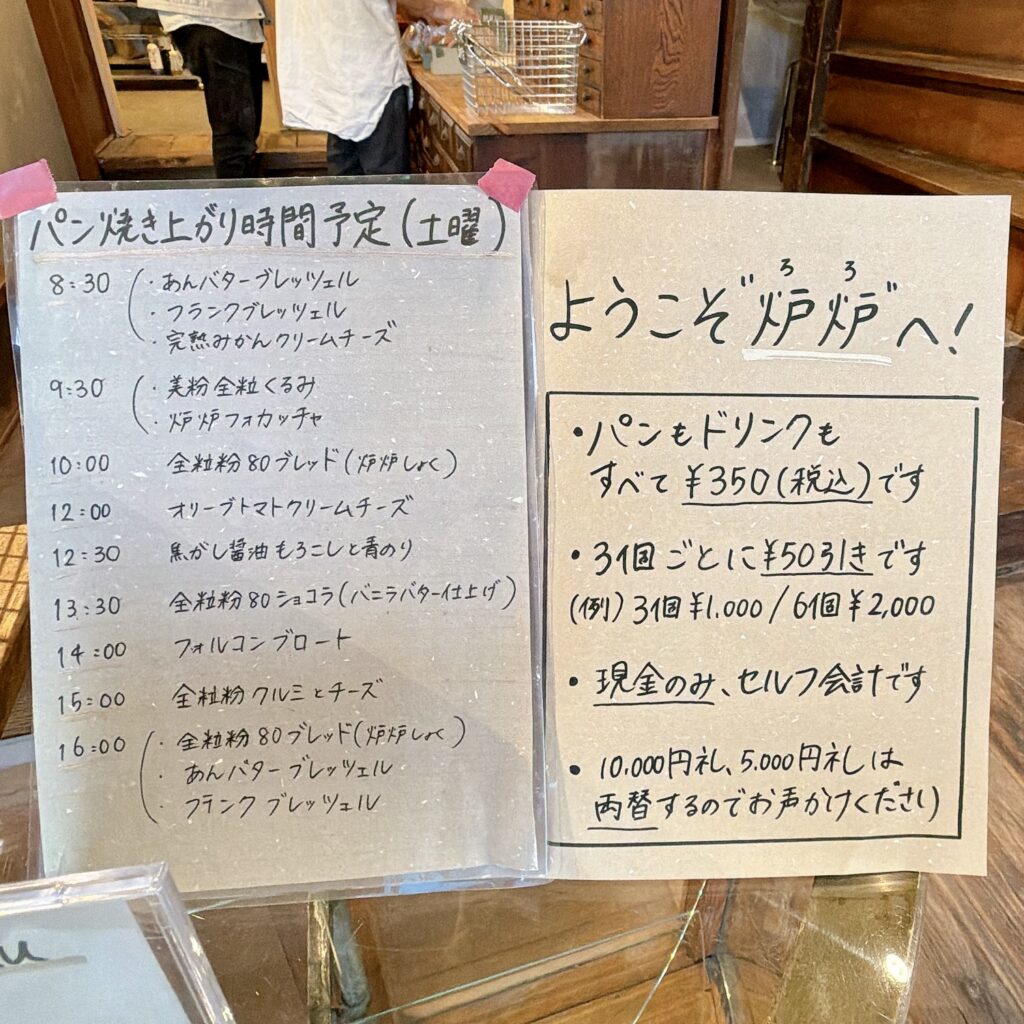 パン焼き上がり時間予定(土曜)
8:30 ・あんバターブレッツェル
・フランクブレッツェル
・完熟みかんクリームチーズ
9:30 ・美粉全粒くるみ
・炉炉フォカッチャ
10:00 全粒粉80ブレッド(炉炉しょく)
12:00 オリーブトマトクリームチーズ
12:30 焦がし醤油もろこしと青のり
13:30 全粒粉80ショコラ(バニラバター仕上げ)
14:00 フォルコンブロート
15:00 全粒粉クルミとチーズ
16:00 ・全粒粉80ブレッド(炉炉しょく)
・あんバターブレッツェル
・フランクブレッツェル
ろ ろ
ようこそ"炉炉"へ!
・パンもドリンクも
すべて¥350(税込)です
・3個ごとに¥50引きです
(例)3個¥1,000/6個¥2,000
・現金のみ、セルフ会計です
・10,000円札、5,000円札は
両替するのでお声かけください